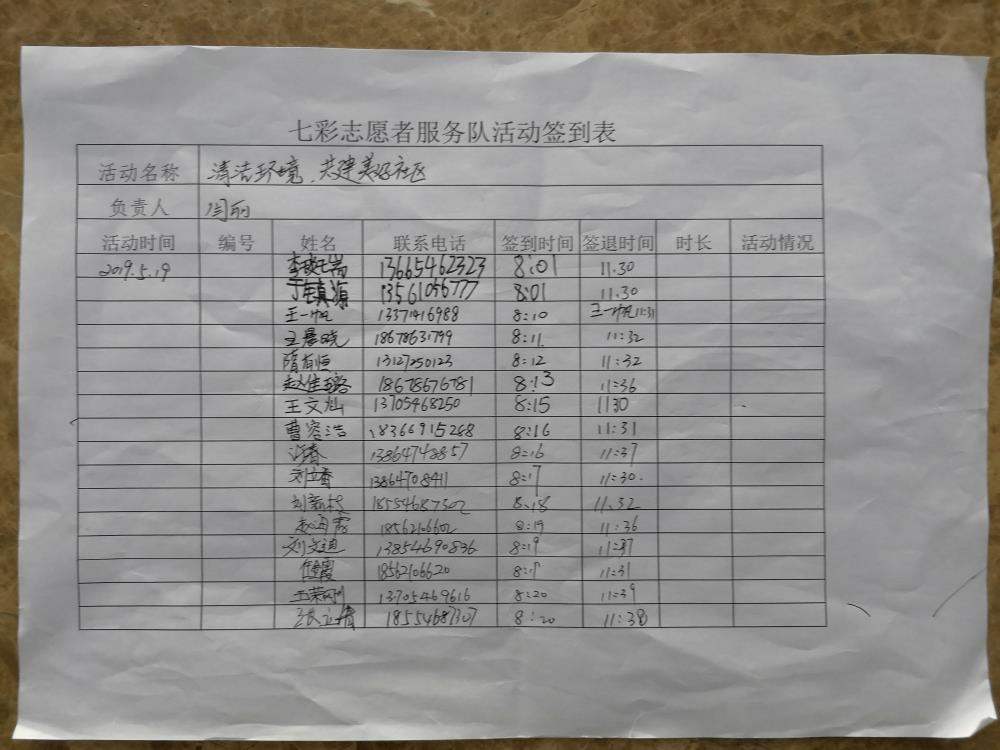 七彩志愿者服务队活动签到表
活动名称 清洁环境、共建美好社区
负责人 闫丽
活动时间 编号 姓名 联系电话 签到时间 签退时间 时长 活动情况
2019.5.19 13665462323 8:01 11.30
丁镇源 13561056777 8:01 11.30
王一帆 13371416988 8:10 王一帆 11:31
王晨晓 18678631799 8:11 11:32
隋有恒 13127250123 8:12 11:32
赵佳璐 18678676781 8:13 11:36
王文灿 13705468250 8:15 1130
曹容浩 18366915268 8:16 11:31
13864748857 8:16 11:37
刘立香 13864708411 8:17 11:30.
刘新枝 18554687302 8:18 11.32
18562106602 8:19 11:36
刘文迪 13854690836 8:19 11:37
18562106620 8:19 11:31
王荣刚 13705469616 8:20 11:39
张立靖 18554687307 8:20 11:38